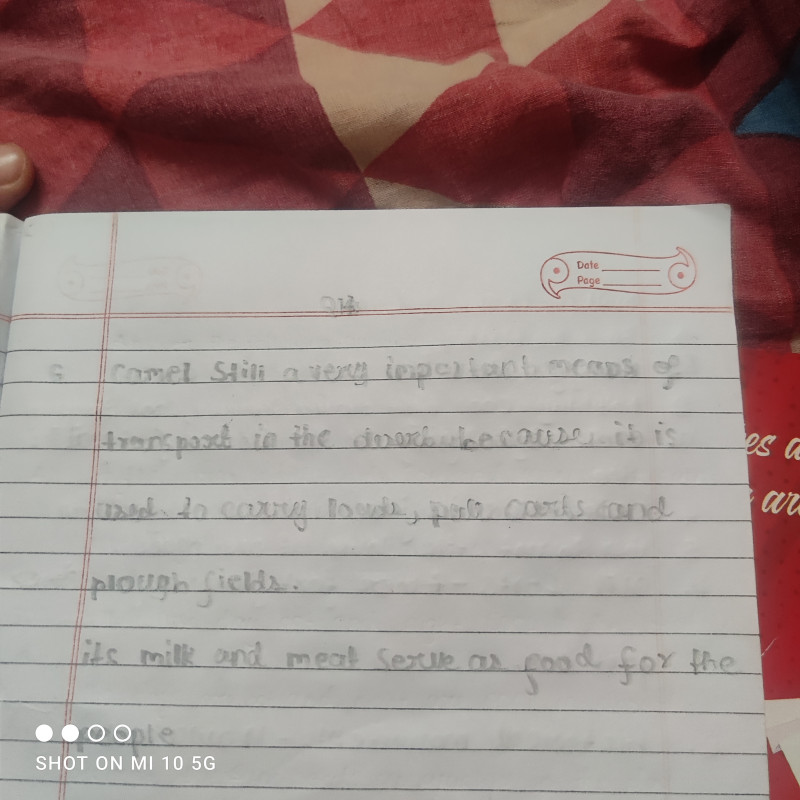 Date
Page
5 Camel Still a very important means of
transport in the desert because it is
used to carry loads, pull carts and
plough fields.
its milk and meat serve as food for the
people
es a
ar
SHOT ON MI 10 5G